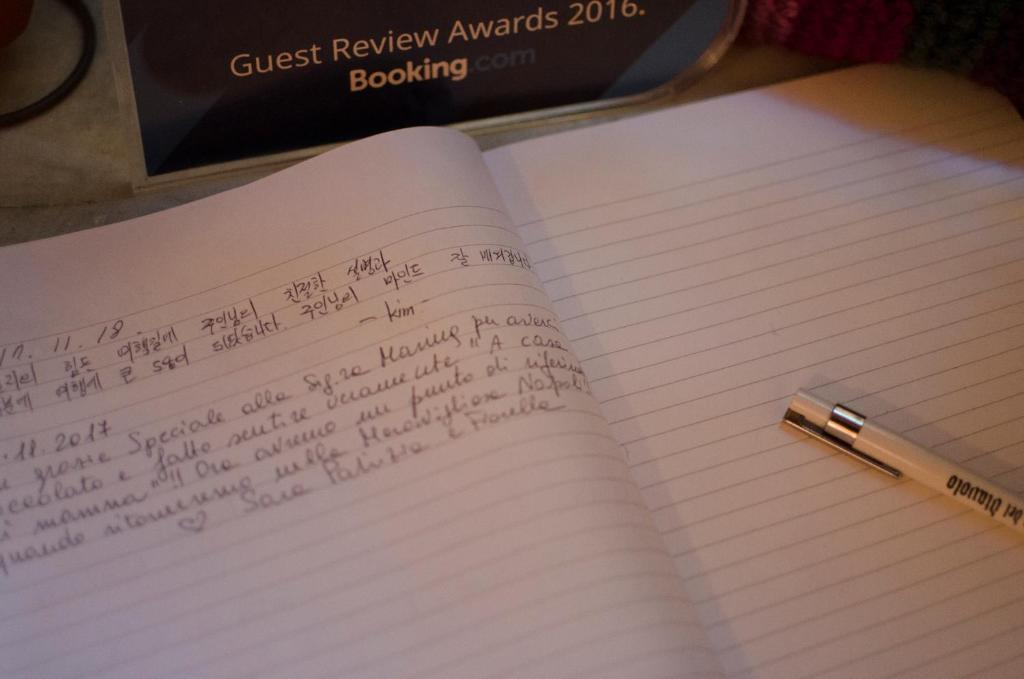 Guest Review Awards 2016.
Booking.com
17. 11. 18.
힘든 여행길에 주인님의 친절한 설명과
여행에 큰 도움이 되었습니다. 주인님의 마인드 잘 배워갑니다
- kim -
.11.2017
grazie Speciale alla Sig.ra Marina per averci
coccolato e fatto sentire veramente "A casa
di mamma"!! Ora avremo un punto di riferimento
quando ritorneremo nella Meravigliosa Napoli!
♡ Sara Patrizia e Fiorella
del diavolo